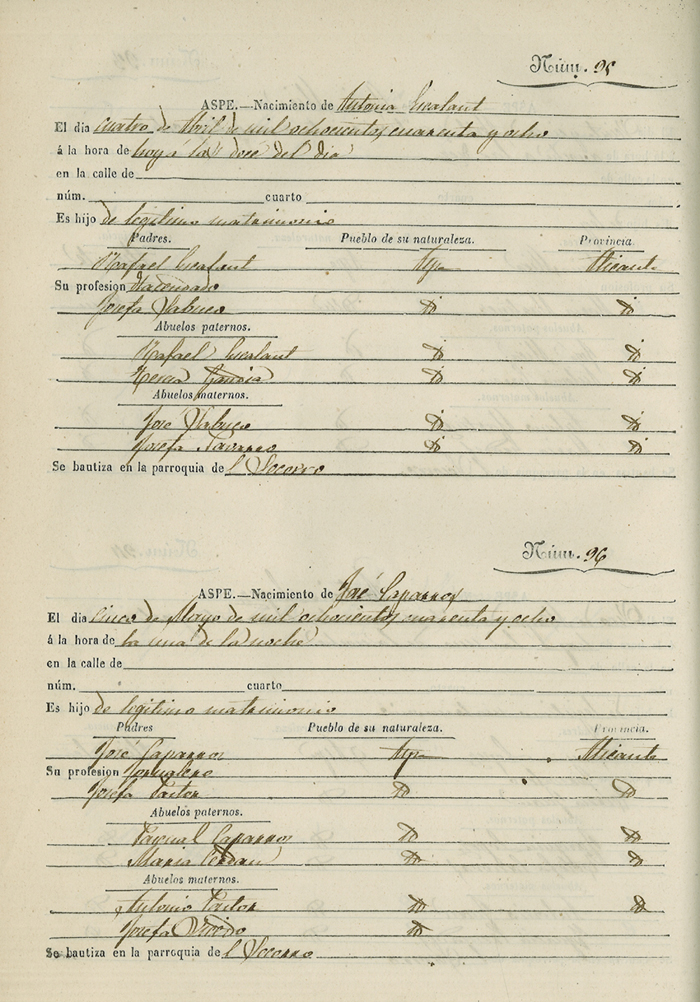 Núm. 95
ASPE.—Nacimiento de Antonia Escalant
El dia cuatro de Abril de mil ochocientos cuarenta y ocho
á la hora de hoy á las doce del dia
en la calle de
núm. cuarto
Es hijo de legitimo matrimonio
Padres. Pueblo de su naturaleza. Provincia.
Rafael Escalant Aspe Alicante
Su profesion
Josefa Sabuco D D
Abuelos paternos.
Rafael Escalant D D
Teresa Gandia D D
Abuelos maternos.
José Sabuco D D
Josefa Navarro D D
Se bautiza en la parroquia de l Socorro
Núm. 96
ASPE.—Nacimiento de José Caparros
El dia cinco de Mayo de mil ochocientos cuarenta y ocho
á la hora de la una de la noche
en la calle de
núm. cuarto
Es hijo de legitimo matrimonio
Padres Pueblo de su naturaleza. Provincia.
José Caparros Aspe Alicante
Su profesion Jornalero
Josefa Pastor D D
Abuelos paternos.
Pascual Caparros D D
Maria Cerdan D D
Abuelos maternos.
Antonio Pastor D D
Josefa D
Se bautiza en la parroquia de l Socorro